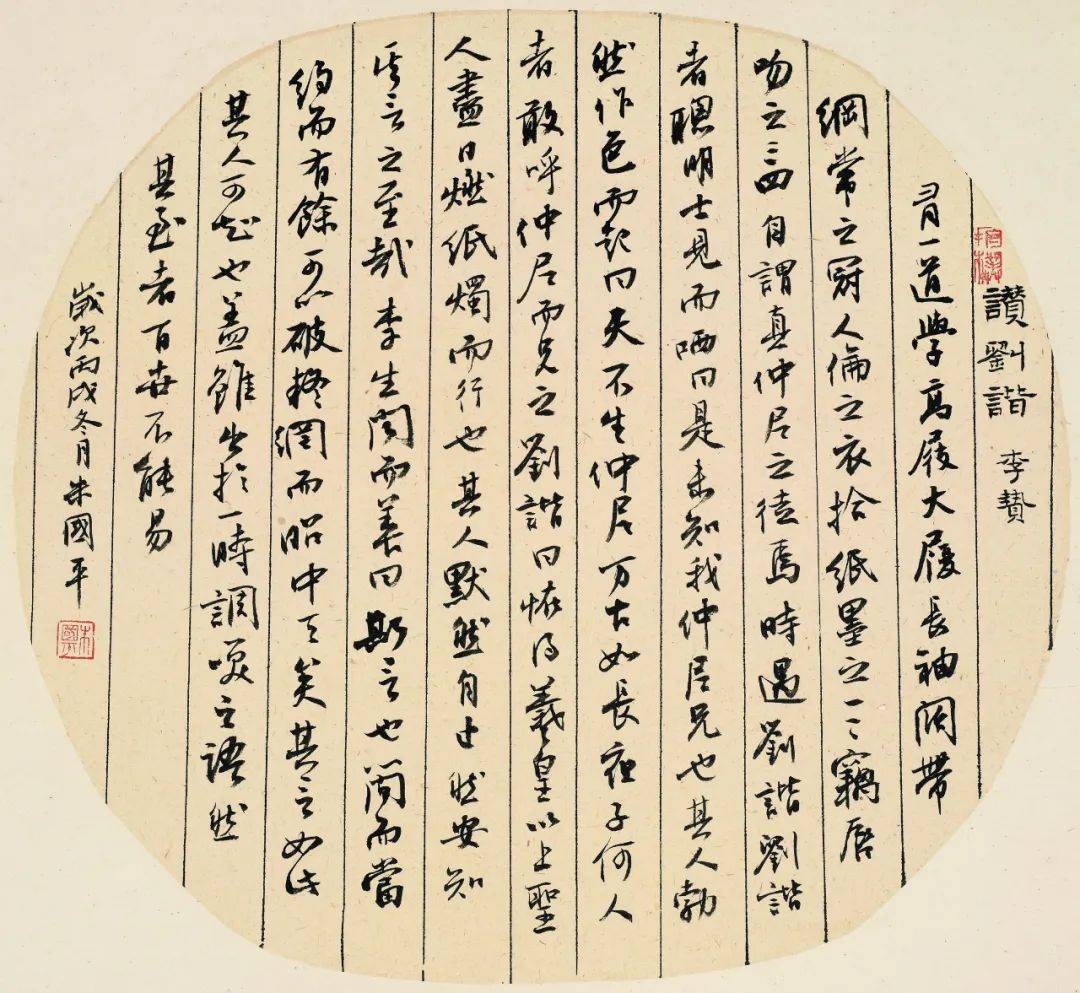 讚劉諧 李贄
有一道學高屐大履長袖闊帶
綱常之冠人倫之衣拾紙墨之一二竊唇
吻之三四自謂真仲尼之徒焉時遇劉諧劉諧
者聰明士見而哂曰是未知我仲尼兄也其人勃
然作色而起曰天不生仲尼万古如長夜子何人
者敢呼仲尼而兄之劉諧曰怪得羲皇以上聖
人盡日燃紙燭而行也其人默然自止然安知
其言之至哉李生聞而善曰斯言也簡而當
約而有餘可以破疑網而昭中天矣其言如此
其人可知也蓋雖出於一時調笑之語然
其至者百世不能易
歲次丙戌冬月朱國平